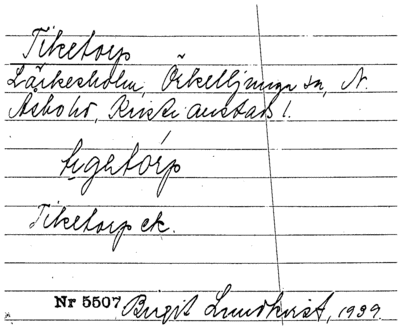 Tiketorp
Lärkesholm, Örkelljunga sn, N.
Åsbo hd, Kristianstads l.
tigatórp
Tiketorp ek.
Nr 5507 Birgit Lundkvist, 1939.